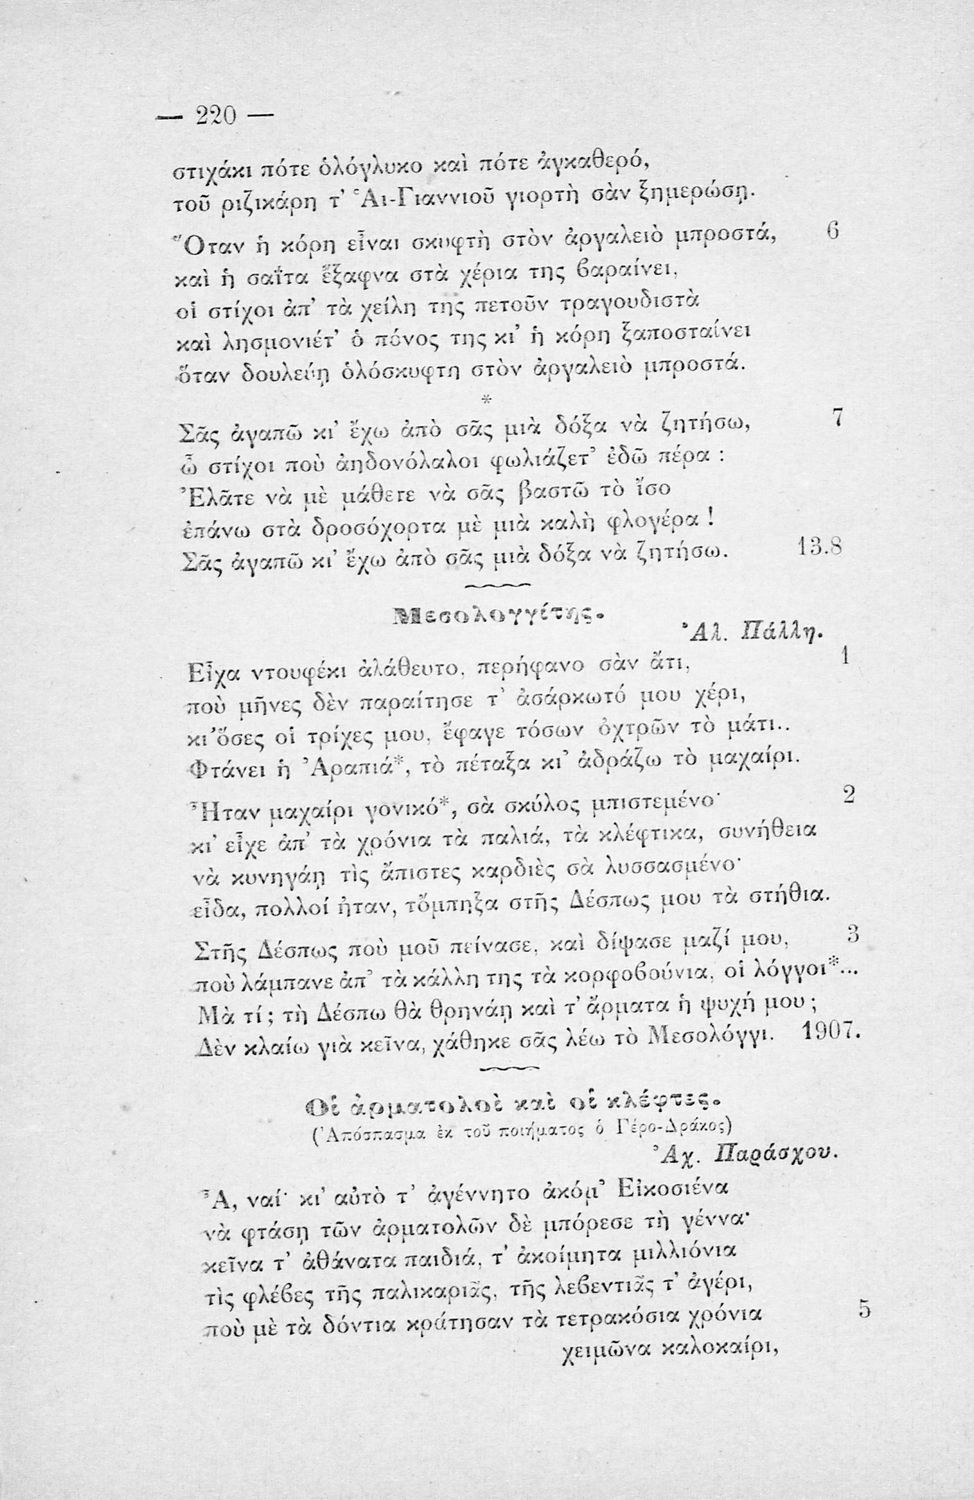 — 220 —
στιχάκι πότε ὁλόγλυκο καὶ πότε ἀγκαθερό,
τοῦ ριζικάρη τ' Ἁι-Γιαννιοῦ γιορτὴ σὰν ξημερώσῃ.
Ὅταν ἡ κόρη εἶναι σκυφτὴ στὸν ἀργαλειὸ μπροστά, 6
καὶ ἡ σαΐτα ἔξαφνα στὰ χέρια της βαραίνει,
οἱ στίχοι ἀπ' τὰ χείλη της πετοῦν τραγουδιστὰ
καὶ λησμονιέτ' ὁ πόνος της κι' ἡ κόρη ξαποσταίνει
ὅταν δουλεύῃ ὁλόσκυφτη στὸν ἀργαλειὸ μπροστά.
*
Σᾶς ἀγαπῶ κι' ἔχω ἀπὸ σᾶς μιὰ δόξα νὰ ζητήσω, 7
ὦ στίχοι ποὺ ἀηδονόλαλοι φωλιάζετ' ἐδῶ πέρα :
Ἐλᾶτε νὰ μὲ μάθετε νὰ σᾶς βαστῶ τὸ ἴσο
ἐπάνω στὰ δροσόχορτα μὲ μιὰ καλὴ φλογέρα !
Σᾶς ἀγαπῶ κι' ἔχω ἀπὸ σᾶς μιὰ δόξα νὰ ζητήσω. 13.8
Μεσολογγίτης.
Ἀλ. Πάλλη.
Εἶχα ντουφέκι ἀλάθευτο, περήφανο σὰν ἄτι, 1
ποὺ μῆνες δὲν παραίτησε τ' ἀσάρκωτό μου χέρι,
κι' ὅσες οἱ τρίχες μου, ἔφαγε τόσων ὀχτρῶν τὸ μάτι..
Φτάνει ἡ Ἀραπιά*, τὸ πέταξα κι' ἀδράζω τὸ μαχαίρι.
Ἦταν μαχαίρι γονικό*, σὰ σκύλος μπιστεμένο· 2
κι' εἶχε ἀπ' τὰ χρόνια τὰ παλιά, τὰ κλέφτικα, συνήθεια
νὰ κυνηγάῃ τὶς ἄπιστες καρδιὲς σὰ λυσσασμένο·
εἶδα, πολλοί ἦταν, τὄμπηξα στῆς Δέσπως μου τὰ στήθια.
Στῆς Δέσπως ποὺ μοῦ πείνασε, καὶ δίψασε μαζί μου, 3
ποὺ λάμπανε ἀπ' τὰ κάλλη της τὰ κορφοβούνια, οἱ λόγγοι*...
Μὰ τί; τὴ Δέσπω θὰ θρηνάῃ καὶ τ' ἄρματα ἡ ψυχή μου ;
Δὲν κλαίω γιὰ κεῖνα, χάθηκε σᾶς λέω τὸ Μεσολόγγι. 1907.
Οἱ ἀρματολοὶ καὶ οἱ κλέφτες.
(Ἀπόσπασμα ἐκ τοῦ ποιήματος ὁ Γέρο-Δράκος)
Ἀχ. Παράσχου.
Ἆ, ναί· κι' αὐτὸ τ' ἀγέννητο ἀκόμ' Εἰκοσιένα
νὰ φτάσῃ τῶν ἀρματολῶν δὲ μπόρεσε τὴ γέννα·
κεῖνα τ' ἀθάνατα παιδιά, τ' ἀκοίμητα μιλλιόνια
τὶς φλέβες τῆς παλικαριᾶς, τῆς λεβεντιᾶς τ' ἀγέρι,
ποὺ μὲ τὰ δόντια κράτησαν τὰ τετρακόσια χρόνια 5
χειμῶνα καλοκαίρι,